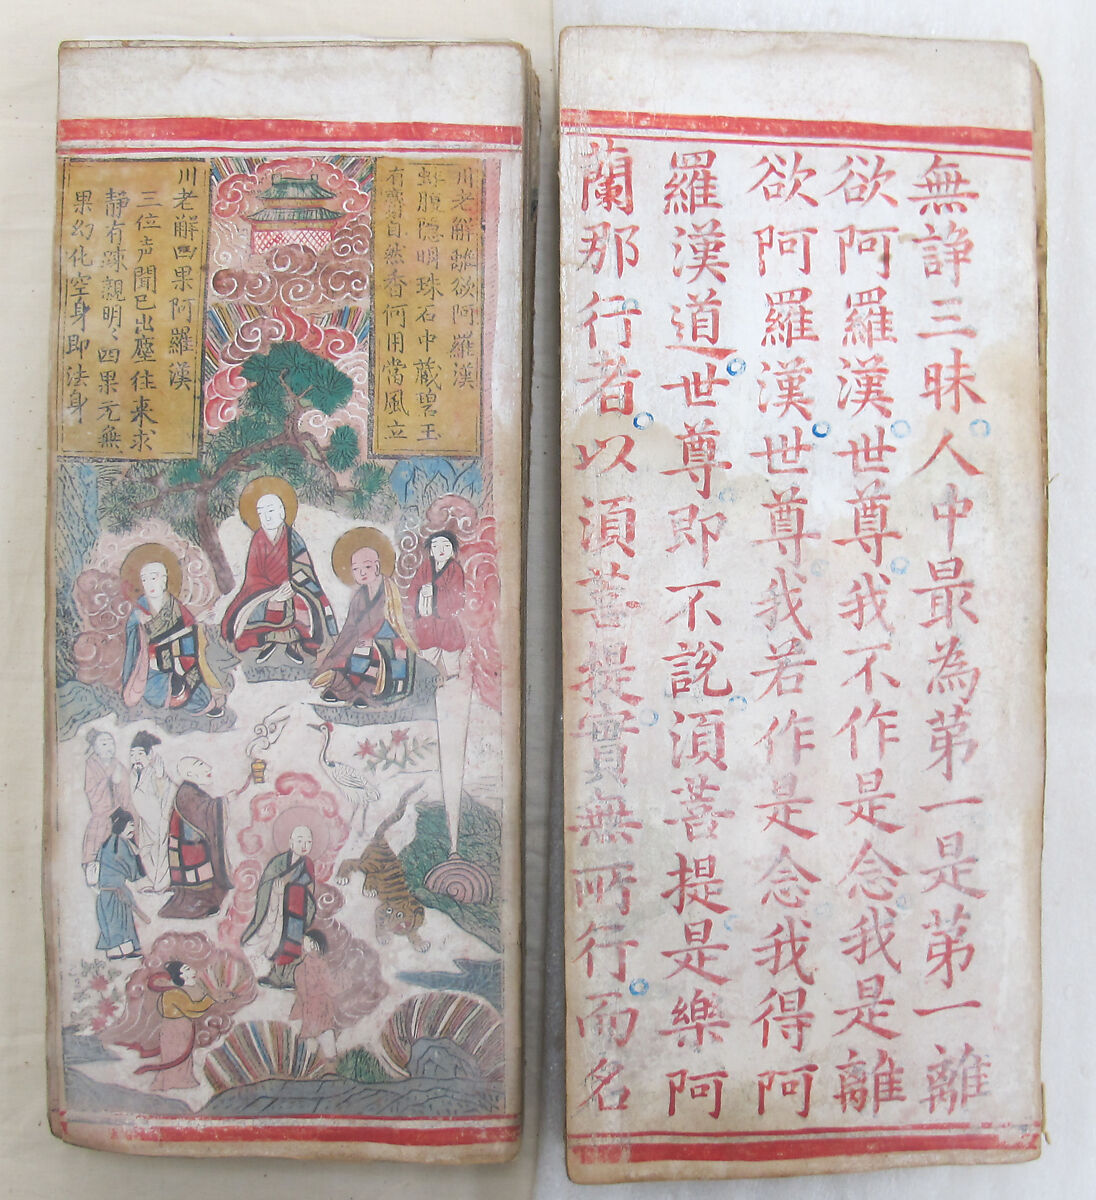 無諍三昧人中最為苐一是苐一離
欲阿羅漢世尊我不作是念我是離
欲阿羅漢世尊我若作是念我得阿
羅漢道世尊即不說湏菩提是樂阿
蘭那行者以湏菩提實無所行而名
川老解離欲阿羅漢
蚌腹隐明珠石中藏碧玉
有麝自然香何用當風立
川老解四果阿羅漢
三位声聞已出塵往来求
静有疎親明〻四果元無
果幻化空身即法身